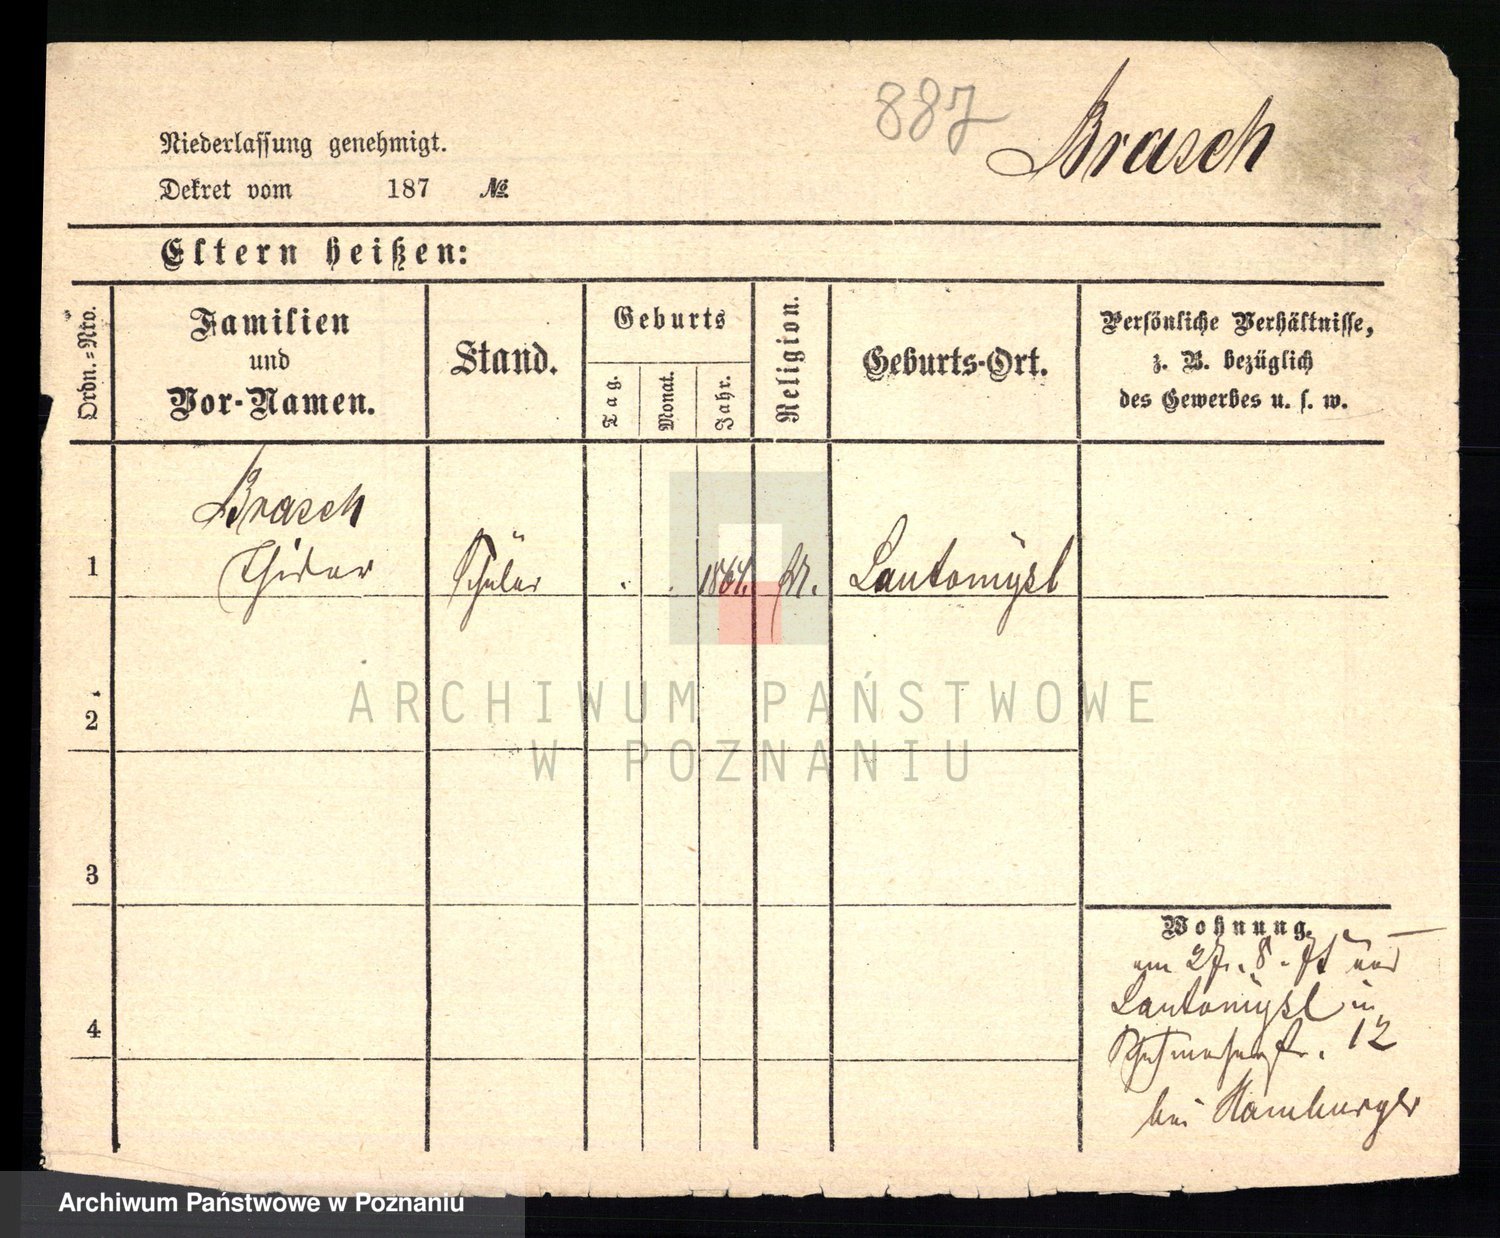 887 Brasch
Niederlassung genehmigt.
Dekret vom 187 №
Eltern heißen:
Ordn.=Nro.
Familien
und
Vor-Namen.
Stand.
Geburts
Tag.
Monat.
Jahr.
Religion.
Geburts-Ort.
Persönliche Verhältnisse,
z. B. bezüglich
des Gewerbes u. s. w.
Brasch
1 Isidor Schüler . . 1864. M. Lautomÿsl
2
3
4
Wohnung.
am 27. 8. 78 aus
Lautomÿsl in
Schuhmacherstr. 12
bei Hamburger
ARCHIWUM PAŃSTWOWE
W POZNANIU
Archiwum Państwowe w Poznaniu